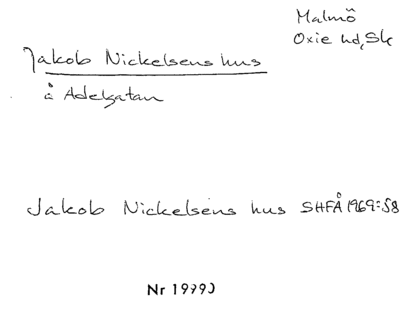 Malmö
Oxie hd, Sk
Jakob Nickelsens hus
å Adelgatan
Jakob Nickelsens hus SHFÅ 1969:58
Nr